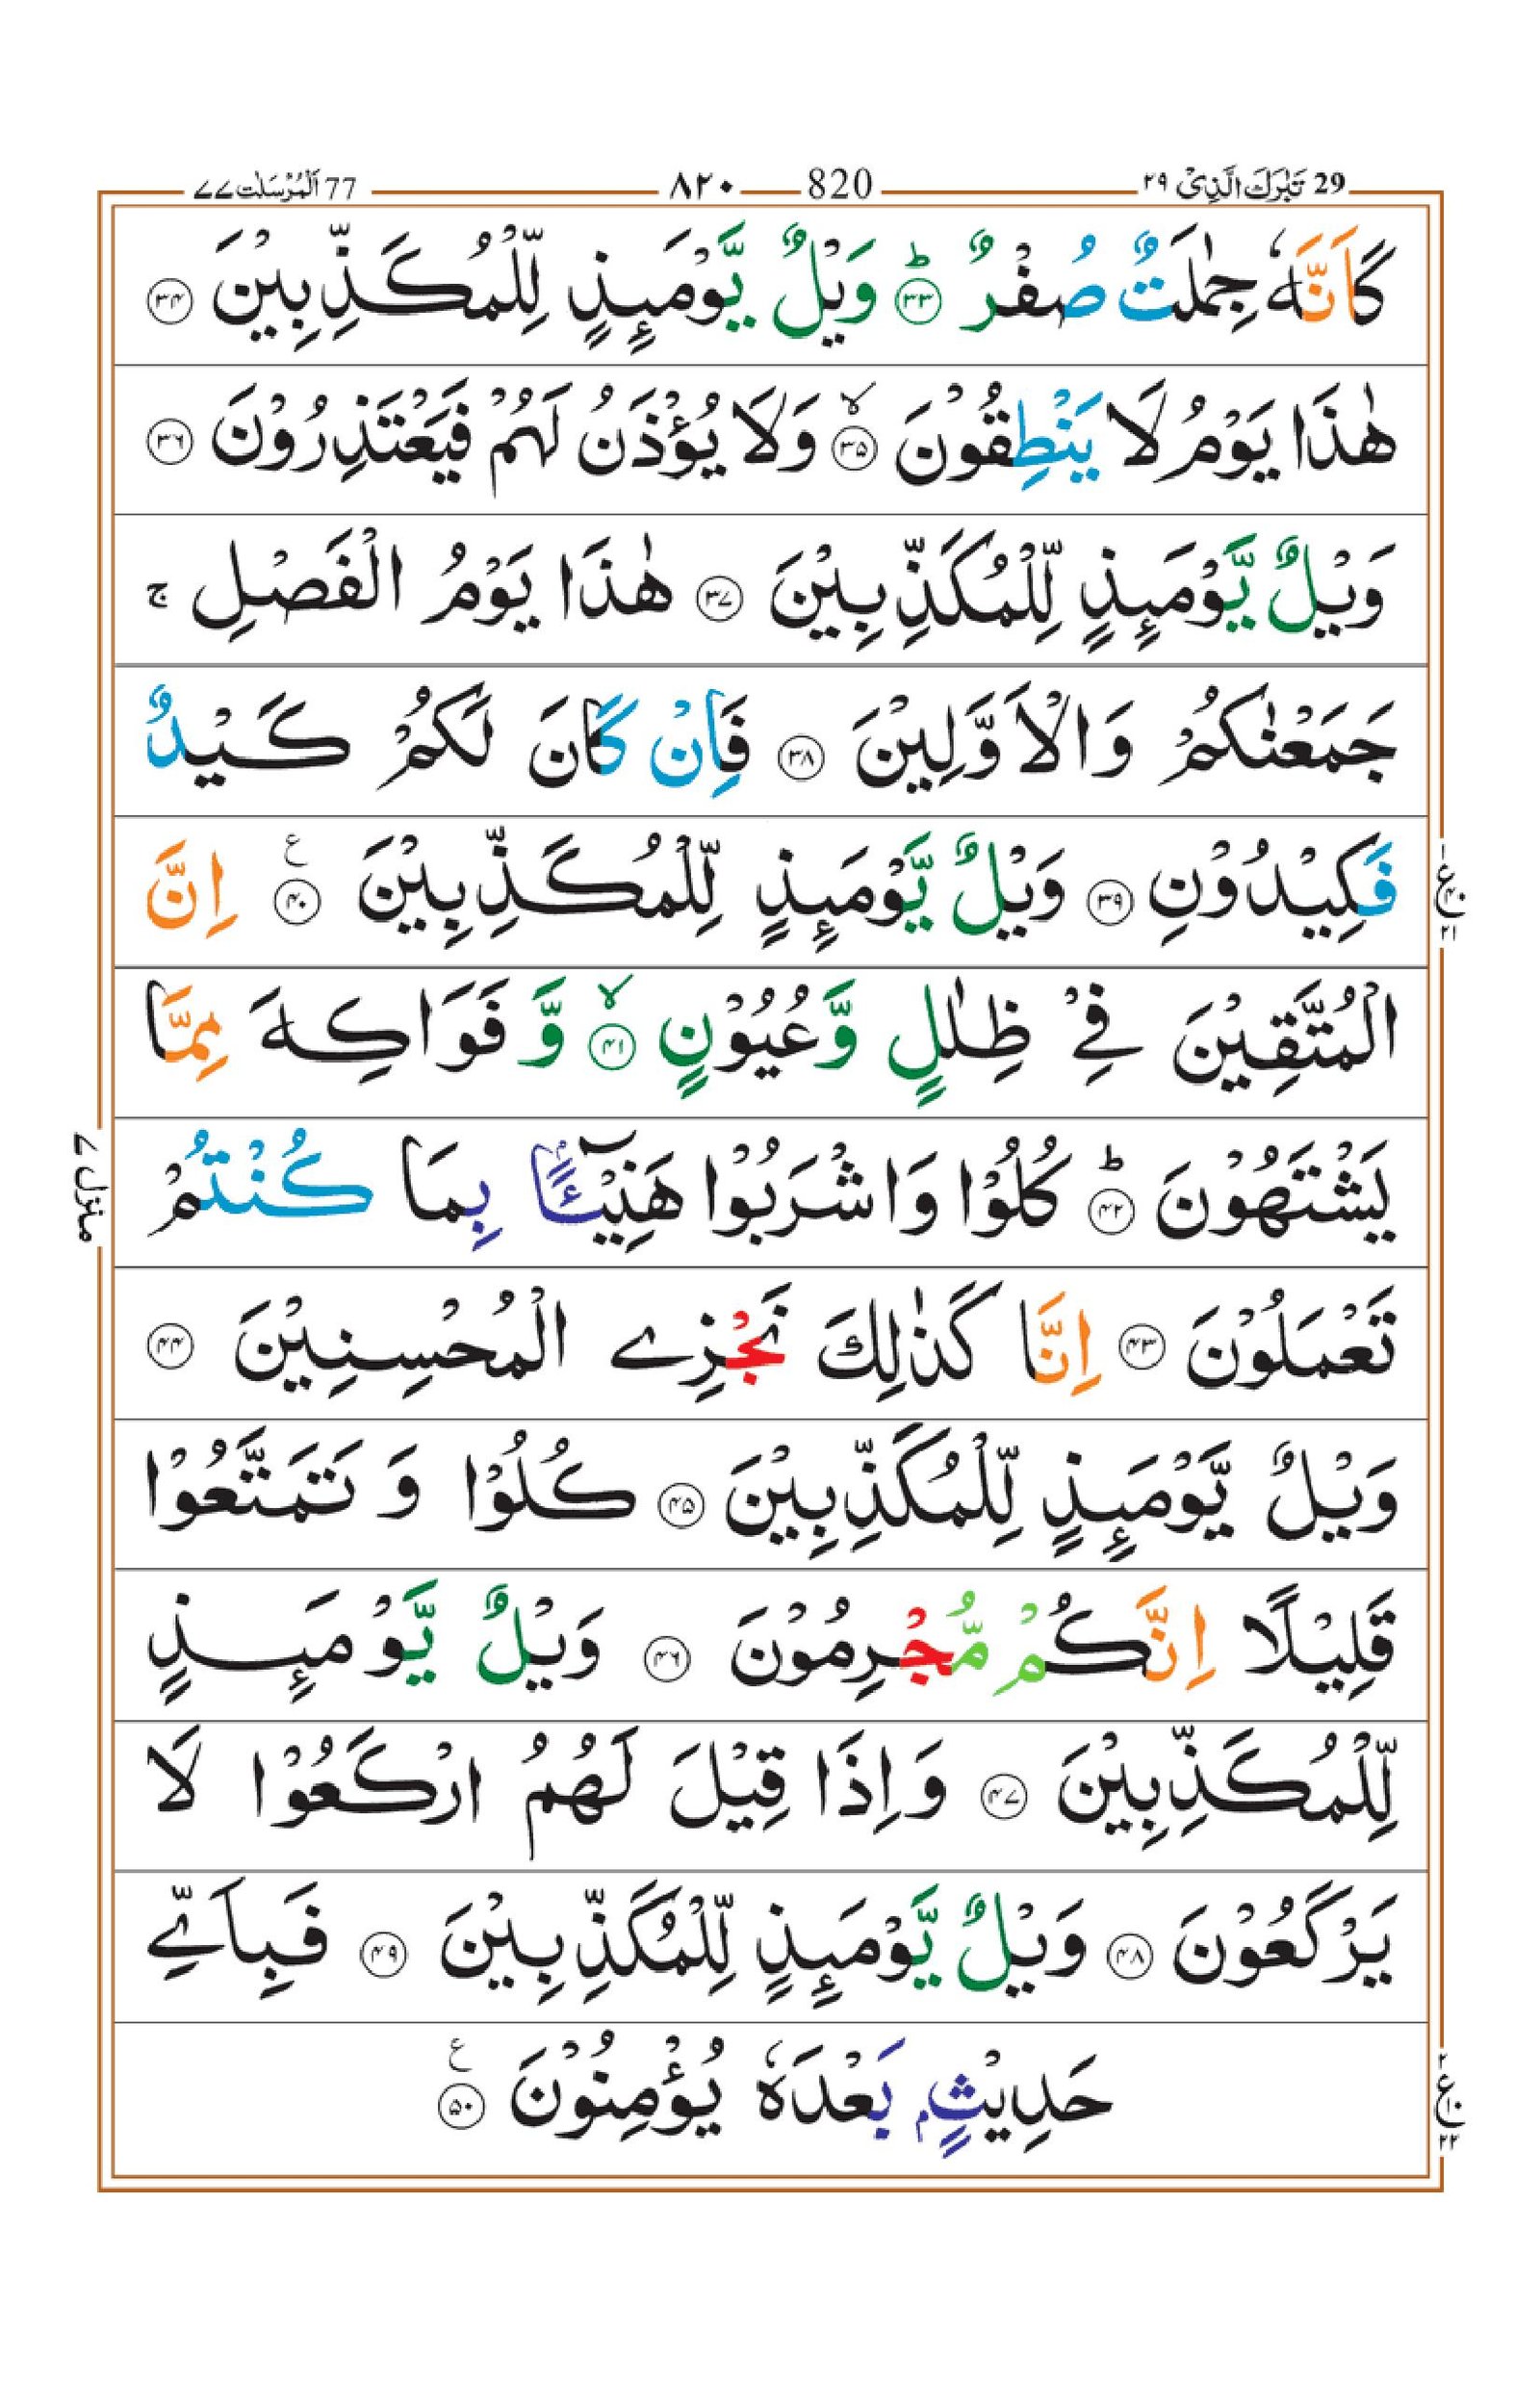 29 تَبٰرَكَ الَّذِیْ ۲۹ 820 ۸۲۰ 77 اَلْمُرْسَلٰت ۷۷
كَاَنَّهٗ جِمٰلَتٌ صُفْرٌ ؕ ۳۳ وَیْلٌ یَّوْمَىِٕذٍ لِّلْمُكَذِّبِیْنَ ۳۴
هٰذَا یَوْمُ لَا یَنْطِقُوْنَ ۙ ۳۵ وَلَا یُؤْذَنُ لَهُمْ فَیَعْتَذِرُوْنَ ۳۶
وَیْلٌ یَّوْمَىِٕذٍ لِّلْمُكَذِّبِیْنَ ۳۷ هٰذَا یَوْمُ الْفَصْلِ ۚ
جَمَعْنٰكُمْ وَالْاَوَّلِیْنَ ۳۸ فَاِنْ كَانَ لَكُمْ كَیْدٌ
فَكِیْدُوْنِ ۳۹ وَیْلٌ یَّوْمَىِٕذٍ لِّلْمُكَذِّبِیْنَ ۴۰ ع اِنَّ
۱ ع ۴۰ ۲۱
الْمُتَّقِیْنَ فِیْ ظِلٰلٍ وَّعُیُوْنٍ ۙ ۴۱ وَّ فَوَاكِهَ مِمَّا
یَشْتَهُوْنَ ؕ ۴۲ كُلُوْا وَاشْرَبُوْا هَنِیْٓـًٔۢا بِمَا كُنْتُمْ
منزل ۷
تَعْمَلُوْنَ ۴۳ اِنَّا كَذٰلِكَ نَجْزِی الْمُحْسِنِیْنَ ۴۴
وَیْلٌ یَّوْمَىِٕذٍ لِّلْمُكَذِّبِیْنَ ۴۵ كُلُوْا وَ تَمَتَّعُوْا
قَلِیْلًا اِنَّكُمْ مُّجْرِمُوْنَ ۴۶ وَیْلٌ یَّوْمَىِٕذٍ
لِّلْمُكَذِّبِیْنَ ۴۷ وَاِذَا قِیْلَ لَهُمُ ارْكَعُوْا لَا
یَرْكَعُوْنَ ۴۸ وَیْلٌ یَّوْمَىِٕذٍ لِّلْمُكَذِّبِیْنَ ۴۹ فَبِاَیِّ
حَدِیْثٍۭ بَعْدَهٗ یُؤْمِنُوْنَ ۵۰ ع
۲ ع ۱۰ ۲۲